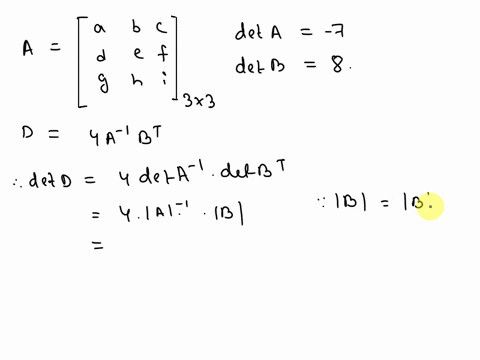 A = [ a b c
d e f
g h i ]3×3
det A = -7
det B = 8.
D = 4A⁻¹ Bᵀ
∴ det D = 4 det A⁻¹ . det Bᵀ
= 4. |A|⁻¹ . |B| ∵ |B| = |B
=